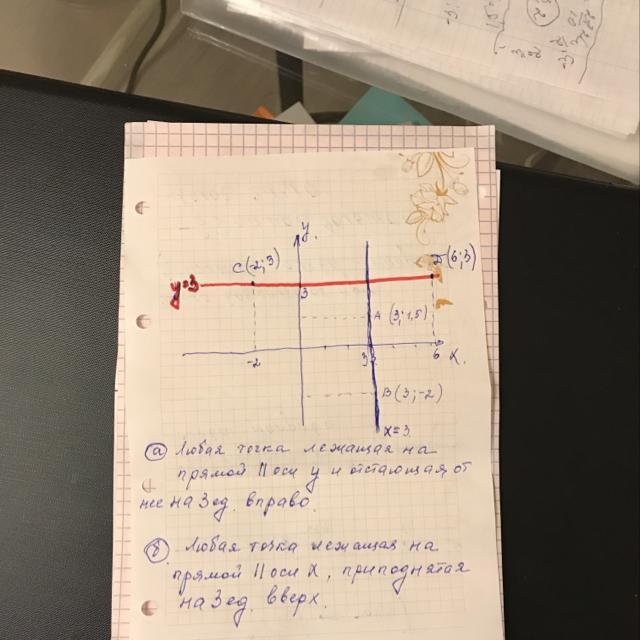 y
C(-2;3)
D(6;3)
y=3
3
A (3;1,5)
-2
3
6
X
B(3;-2)
X=3
а Любая точка лежащая на
прямой II оси y и отстающая от
нее на 3 ед. вправо.
б Любая точка лежащая на
прямой II оси X, приподнятая
на 3 ед. вверх.